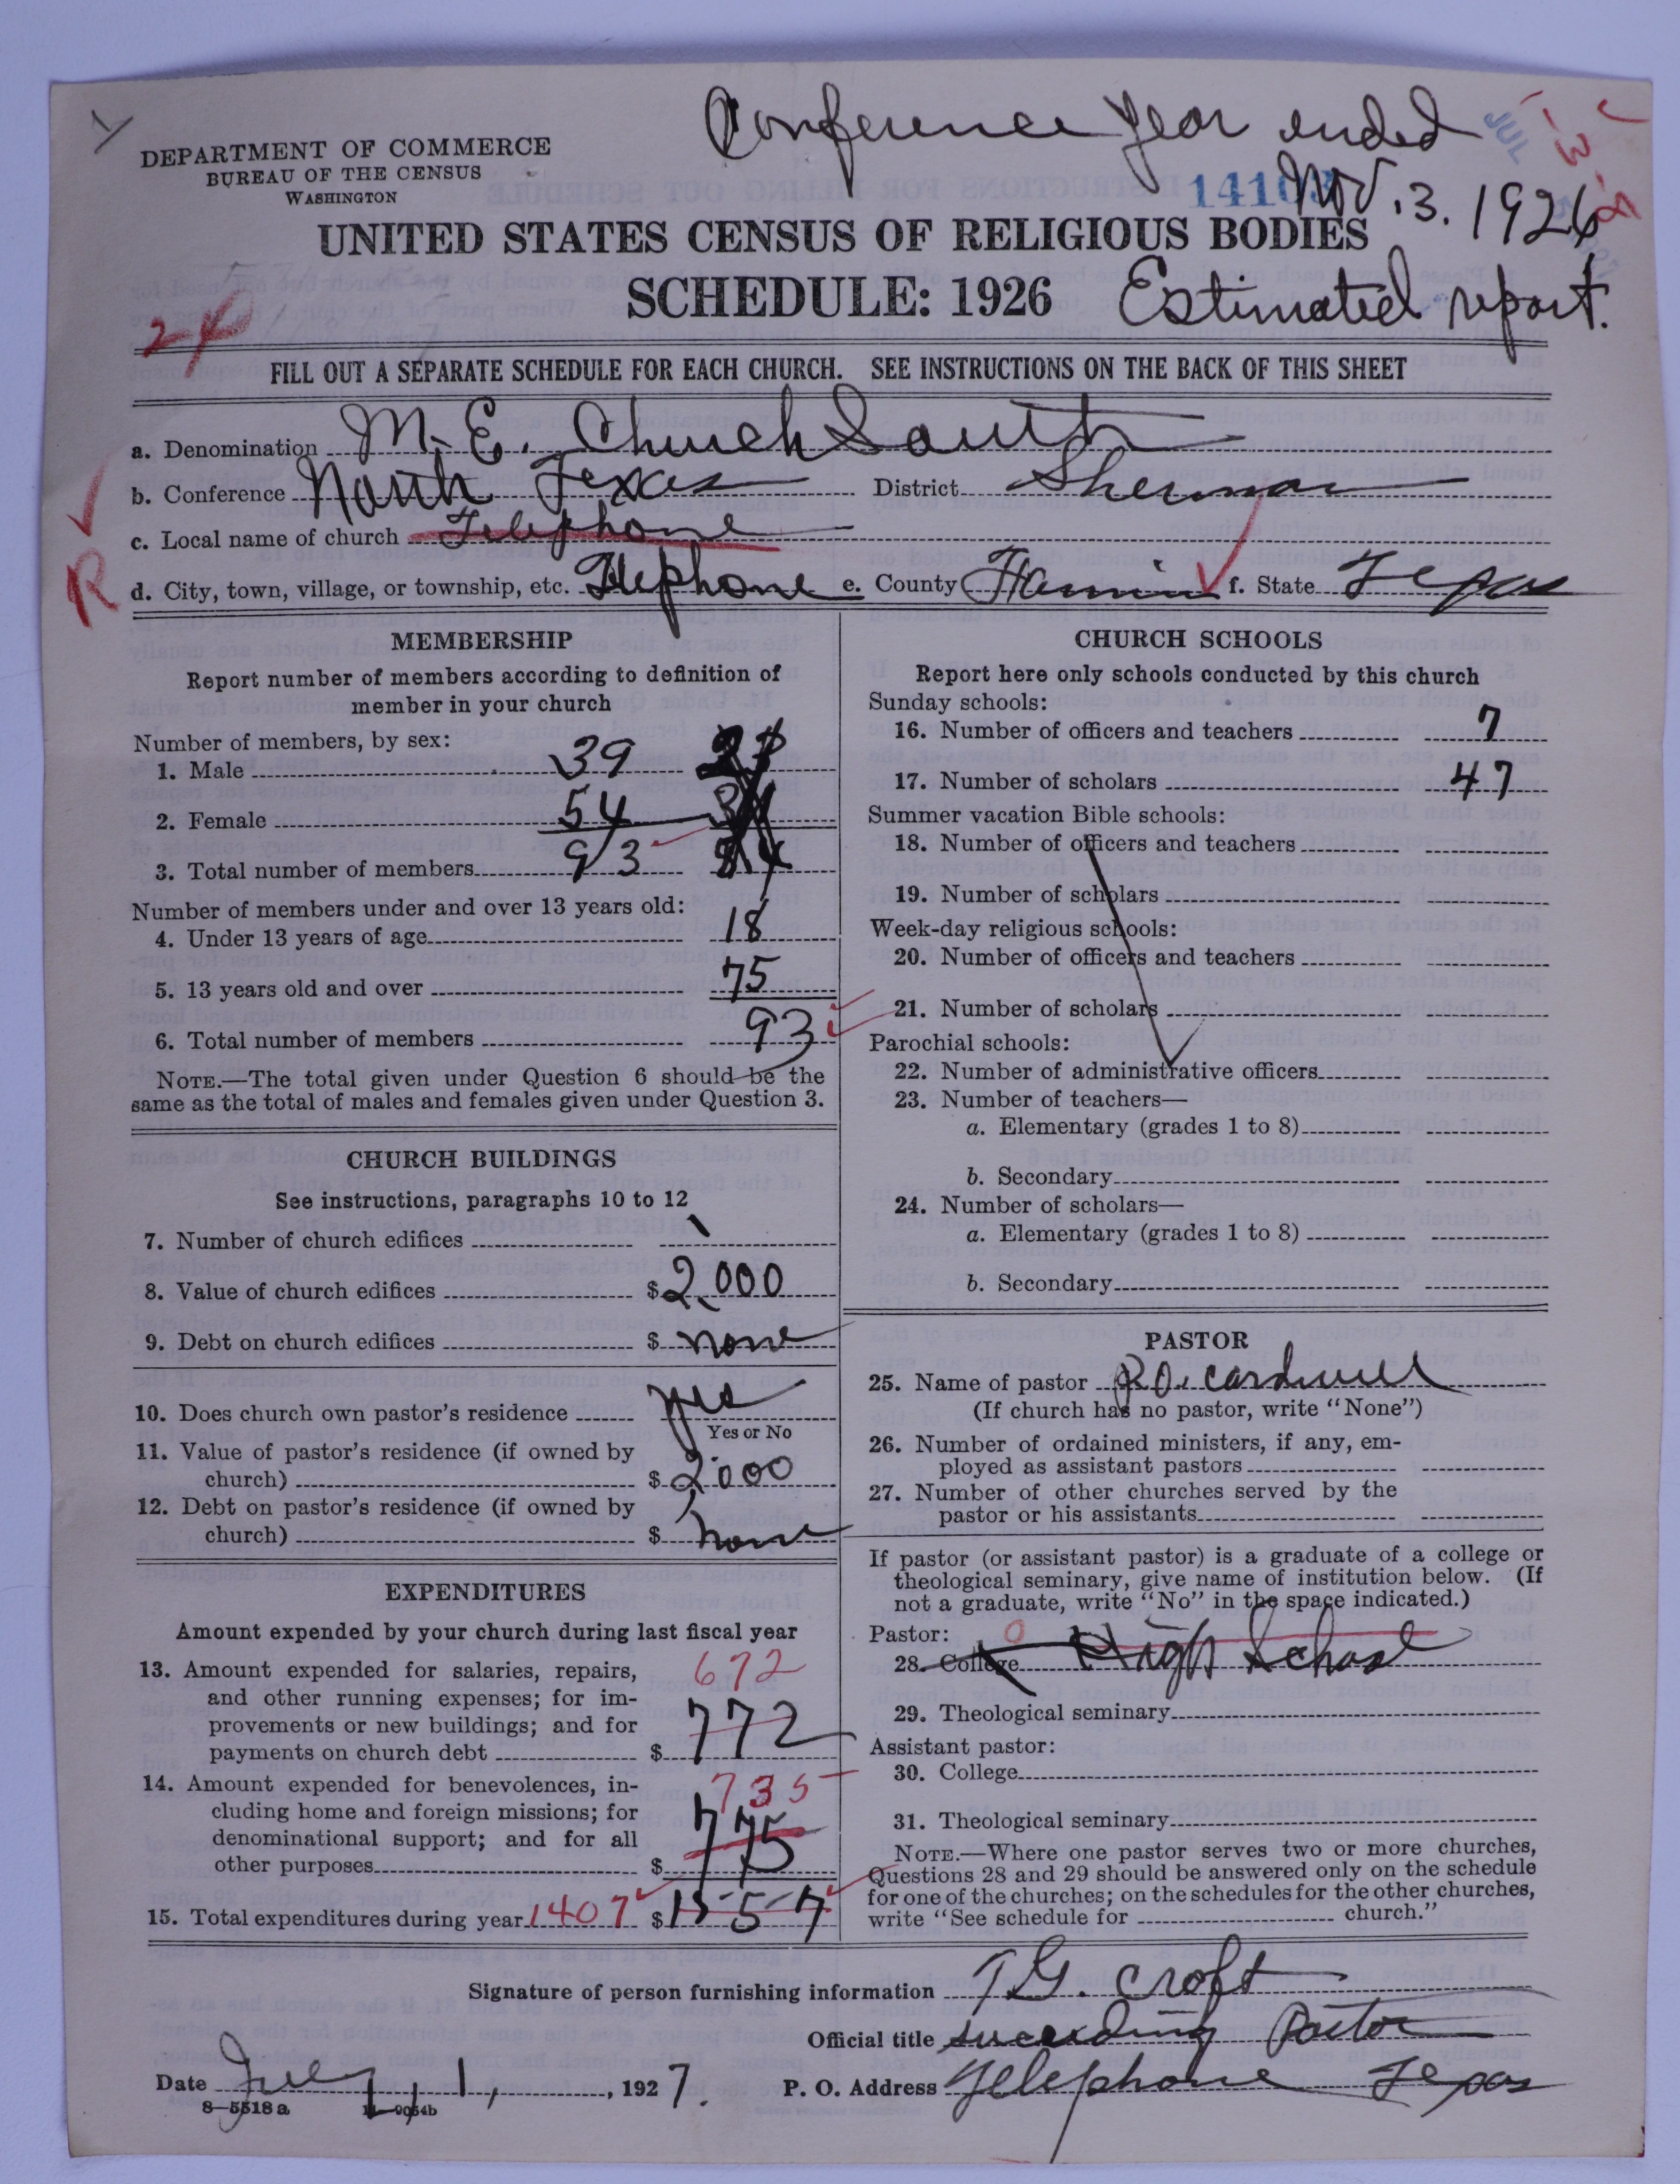 Conference year ended
Nov. 3. 1926
DEPARTMENT OF COMMERCE
BUREAU OF THE CENSUS
WASHINGTON
UNITED STATES CENSUS OF RELIGIOUS BODIES
SCHEDULE: 1926
Estimated report.
FILL OUT A SEPARATE SCHEDULE FOR EACH CHURCH. SEE INSTRUCTIONS ON THE BACK OF THIS SHEET
a. Denomination M. E. Church South
b. Conference North Texas District Sherman
c. Local name of church Telephone
R
d. City, town, village, or township, etc. Telephone e. County Fannin f. State Texas
MEMBERSHIP
Report number of members according to definition of
member in your church
Number of members, by sex:
1. Male 39
2. Female 54
3. Total number of members 93
Number of members under and over 13 years old:
4. Under 13 years of age 18
5. 13 years old and over 75
6. Total number of members 93
NOTE.—The total given under Question 6 should be the
same as the total of males and females given under Question 3.
CHURCH BUILDINGS
See instructions, paragraphs 10 to 12
7. Number of church edifices 1
8. Value of church edifices $2,000
9. Debt on church edifices $ none
10. Does church own pastor's residence yes
Yes or No
11. Value of pastor's residence (if owned by
church) $2000
12. Debt on pastor's residence (if owned by
church) $ none
EXPENDITURES
Amount expended by your church during last fiscal year
13. Amount expended for salaries, repairs, 672
and other running expenses; for im-
provements or new buildings; and for
payments on church debt $ 772
14. Amount expended for benevolences, in- 735
cluding home and foreign missions; for
denominational support; and for all
other purposes $ 775
15. Total expenditures during year 1407 $1557
CHURCH SCHOOLS
Report here only schools conducted by this church
Sunday schools:
16. Number of officers and teachers 7
17. Number of scholars 47
Summer vacation Bible schools:
18. Number of officers and teachers
19. Number of scholars
Week-day religious schools:
20. Number of officers and teachers
21. Number of scholars
Parochial schools:
22. Number of administrative officers
23. Number of teachers—
a. Elementary (grades 1 to 8)
b. Secondary
24. Number of scholars—
a. Elementary (grades 1 to 8)
b. Secondary
PASTOR
25. Name of pastor R.O. Cardwell
(If church has no pastor, write "None")
26. Number of ordained ministers, if any, em-
ployed as assistant pastors
27. Number of other churches served by the
pastor or his assistants
If pastor (or assistant pastor) is a graduate of a college or
theological seminary, give name of institution below. (If
not a graduate, write "No" in the space indicated.)
Pastor: 0
28. College High School
29. Theological seminary
Assistant pastor:
30. College
31. Theological seminary
NOTE.—Where one pastor serves two or more churches,
Questions 28 and 29 should be answered only on the schedule
for one of the churches; on the schedules for the other churches,
write "See schedule for church."
Signature of person furnishing information T.G. Croft
Official title succeeding Pastor
Date July 1, 1927. P. O. Address Telephone Texas
8—5518 a